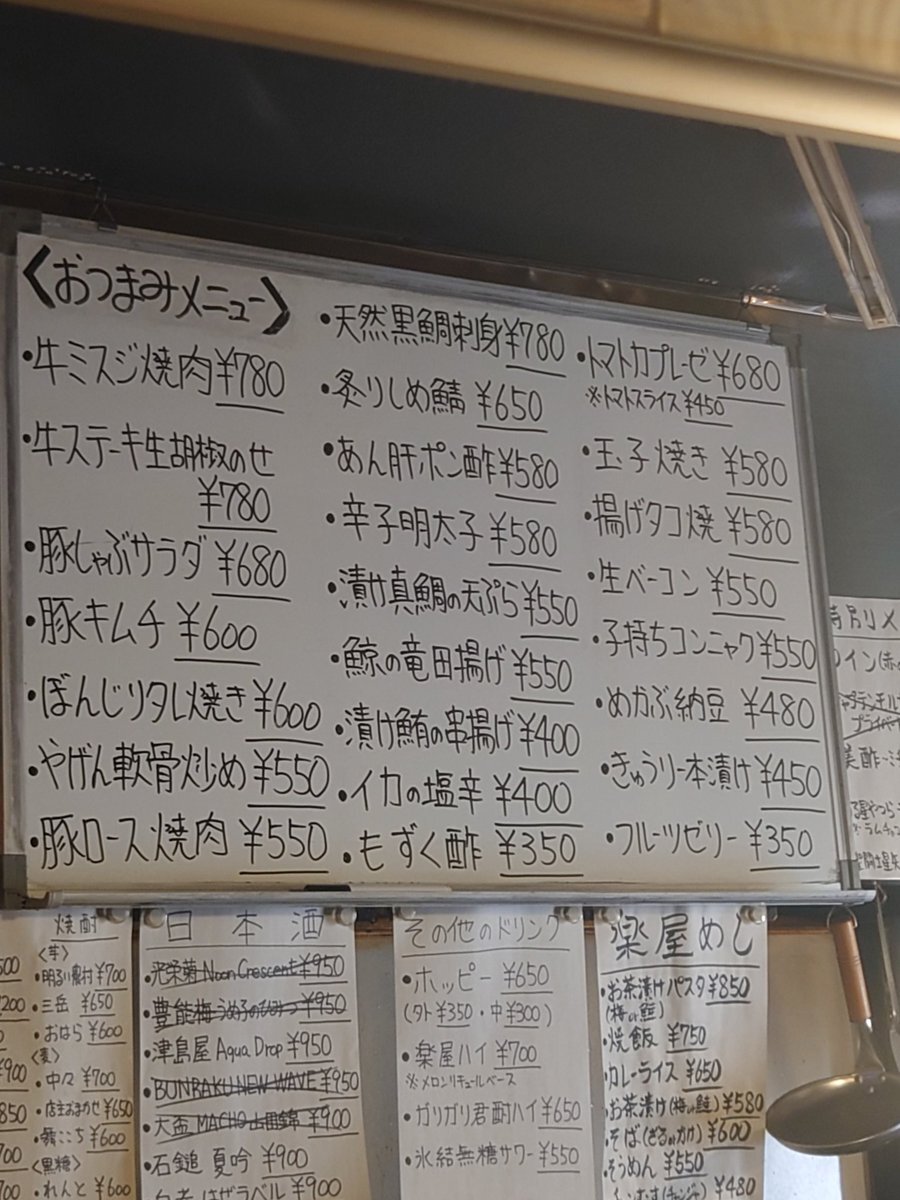 〈おつまみメニュー〉
・牛ミスジ焼肉¥780
・牛ステーキ生胡椒のせ
¥780
・豚しゃぶサラダ ¥680
・豚キムチ ¥600
・ぼんじりタレ焼き¥600
・やげん軟骨炒め¥550
・豚ロース焼肉 ¥550
・天然黒鯛刺身¥780
・炙りしめ鯖 ¥650
・あん肝ポン酢¥580
・辛子明太子 ¥580
・漬け真鯛の天ぷら¥550
・鯨の竜田揚げ¥550
・漬け鮪の串揚げ¥400
・イカの塩辛 ¥400
・もずく酢 ¥350
・トマトカプレーゼ¥680
※トマトスライス¥450
・玉子焼き ¥580
・揚げタコ焼 ¥580
・生ベーコン ¥550
・子持ちコンニャク¥550
・めかぶ納豆 ¥480
・きゅうり一本漬け¥450
・フルーツゼリー ¥350
焼酎
<芋>
・明るい農村¥700
・三岳 ¥650
・おはら ¥600
<麦>
・中々 ¥700
・店主おまかせ ¥650
¥600
<黒糖>
・れんと ¥600
日本酒
・光栄菊 Noon Crescent ¥950
・豊能梅 ¥950
・津島屋 Aqua Drop ¥950
・BUNRAKU NEW WAVE ¥950
・大盃 MACHO 山田錦 ¥900
・石鎚 夏吟 ¥900
¥900
その他のドリンク
・ホッピー ¥650
(外 ¥350・中¥300)
・楽屋ハイ ¥700
※メロンリキュールベース
・ガリガリ君酎ハイ ¥650
・氷結無糖サワー ¥550
楽屋めし
・お茶漬けパスタ¥850
(梅or鮭)
・焼飯 ¥750
・カレーライス ¥650
・お茶漬け(梅or鮭) ¥580
・そば(ざるorかけ) ¥600
・そうめん ¥550
¥480
特別メ